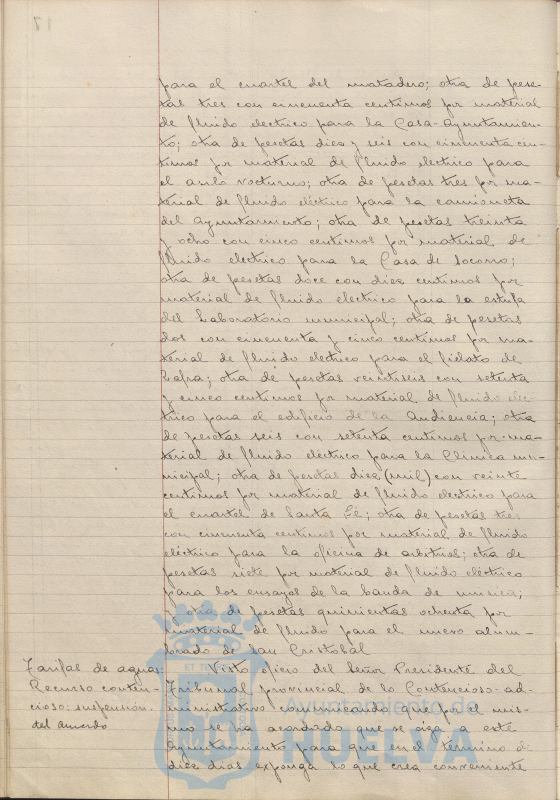 para el cuartel del matadero; otra de pese-
tas tres con cincuenta centimos por material
de fluido electrico para la Casa-Ayuntamien-
to; otra de pesetas diez y seis con cincuenta cen-
timos por material de fluido electrico para
el asilo nocturno; otra de pesetas tres por ma-
terial de fluido eléctrico para la camioneta
del Ayuntamiento; otra de pesetas treinta
y ocho con cinco centimos por material de
fluido electrico para la Casa de Socorro;
otra de pesetas doce con diez centimos por
material de fluido electrico para la estufa
del Laboratorio municipal; otra de pesetas
dos con cincuenta y cinco centimos por ma-
terial de fluido electrico para el fielato de
Zafra; otra de pesetas veintiseis con setenta
y cinco centimos por material de fluido eléc-
trico para el edificio de la Audiencia; otra
de pesetas seis con setenta centimos por ma-
terial de fluido eléctrico para la Clinica mu-
nicipal; otra de pesetas diez (mil) con veinte
centimos por material de fluido electrico para
el cuartel de Santa Fé; otra de pesetas tres
con cincuenta centimos por material de fluido
eléctrico para la oficina de arbitrios; otra de
pesetas siete por material de fluido eléctrico
para los ensayos de la banda de musica;
y otra de pesetas quinientas ochenta por
material de fluido para el nuevo alum-
brado de San Cristobal
Tarifas de aguas.
Recurso conten-
cioso: suspensión.
del acuerdo
Visto oficio del Señor Presidente del
Tribunal provincial de lo Contencioso-ad-
ministrativo comunicando que por el mis-
mo se ha acordado que se oiga a este
Ayuntamiento para que en el término de
diez dias exponga lo que crea conveniente
Ayuntamiento de
HUELVA
17